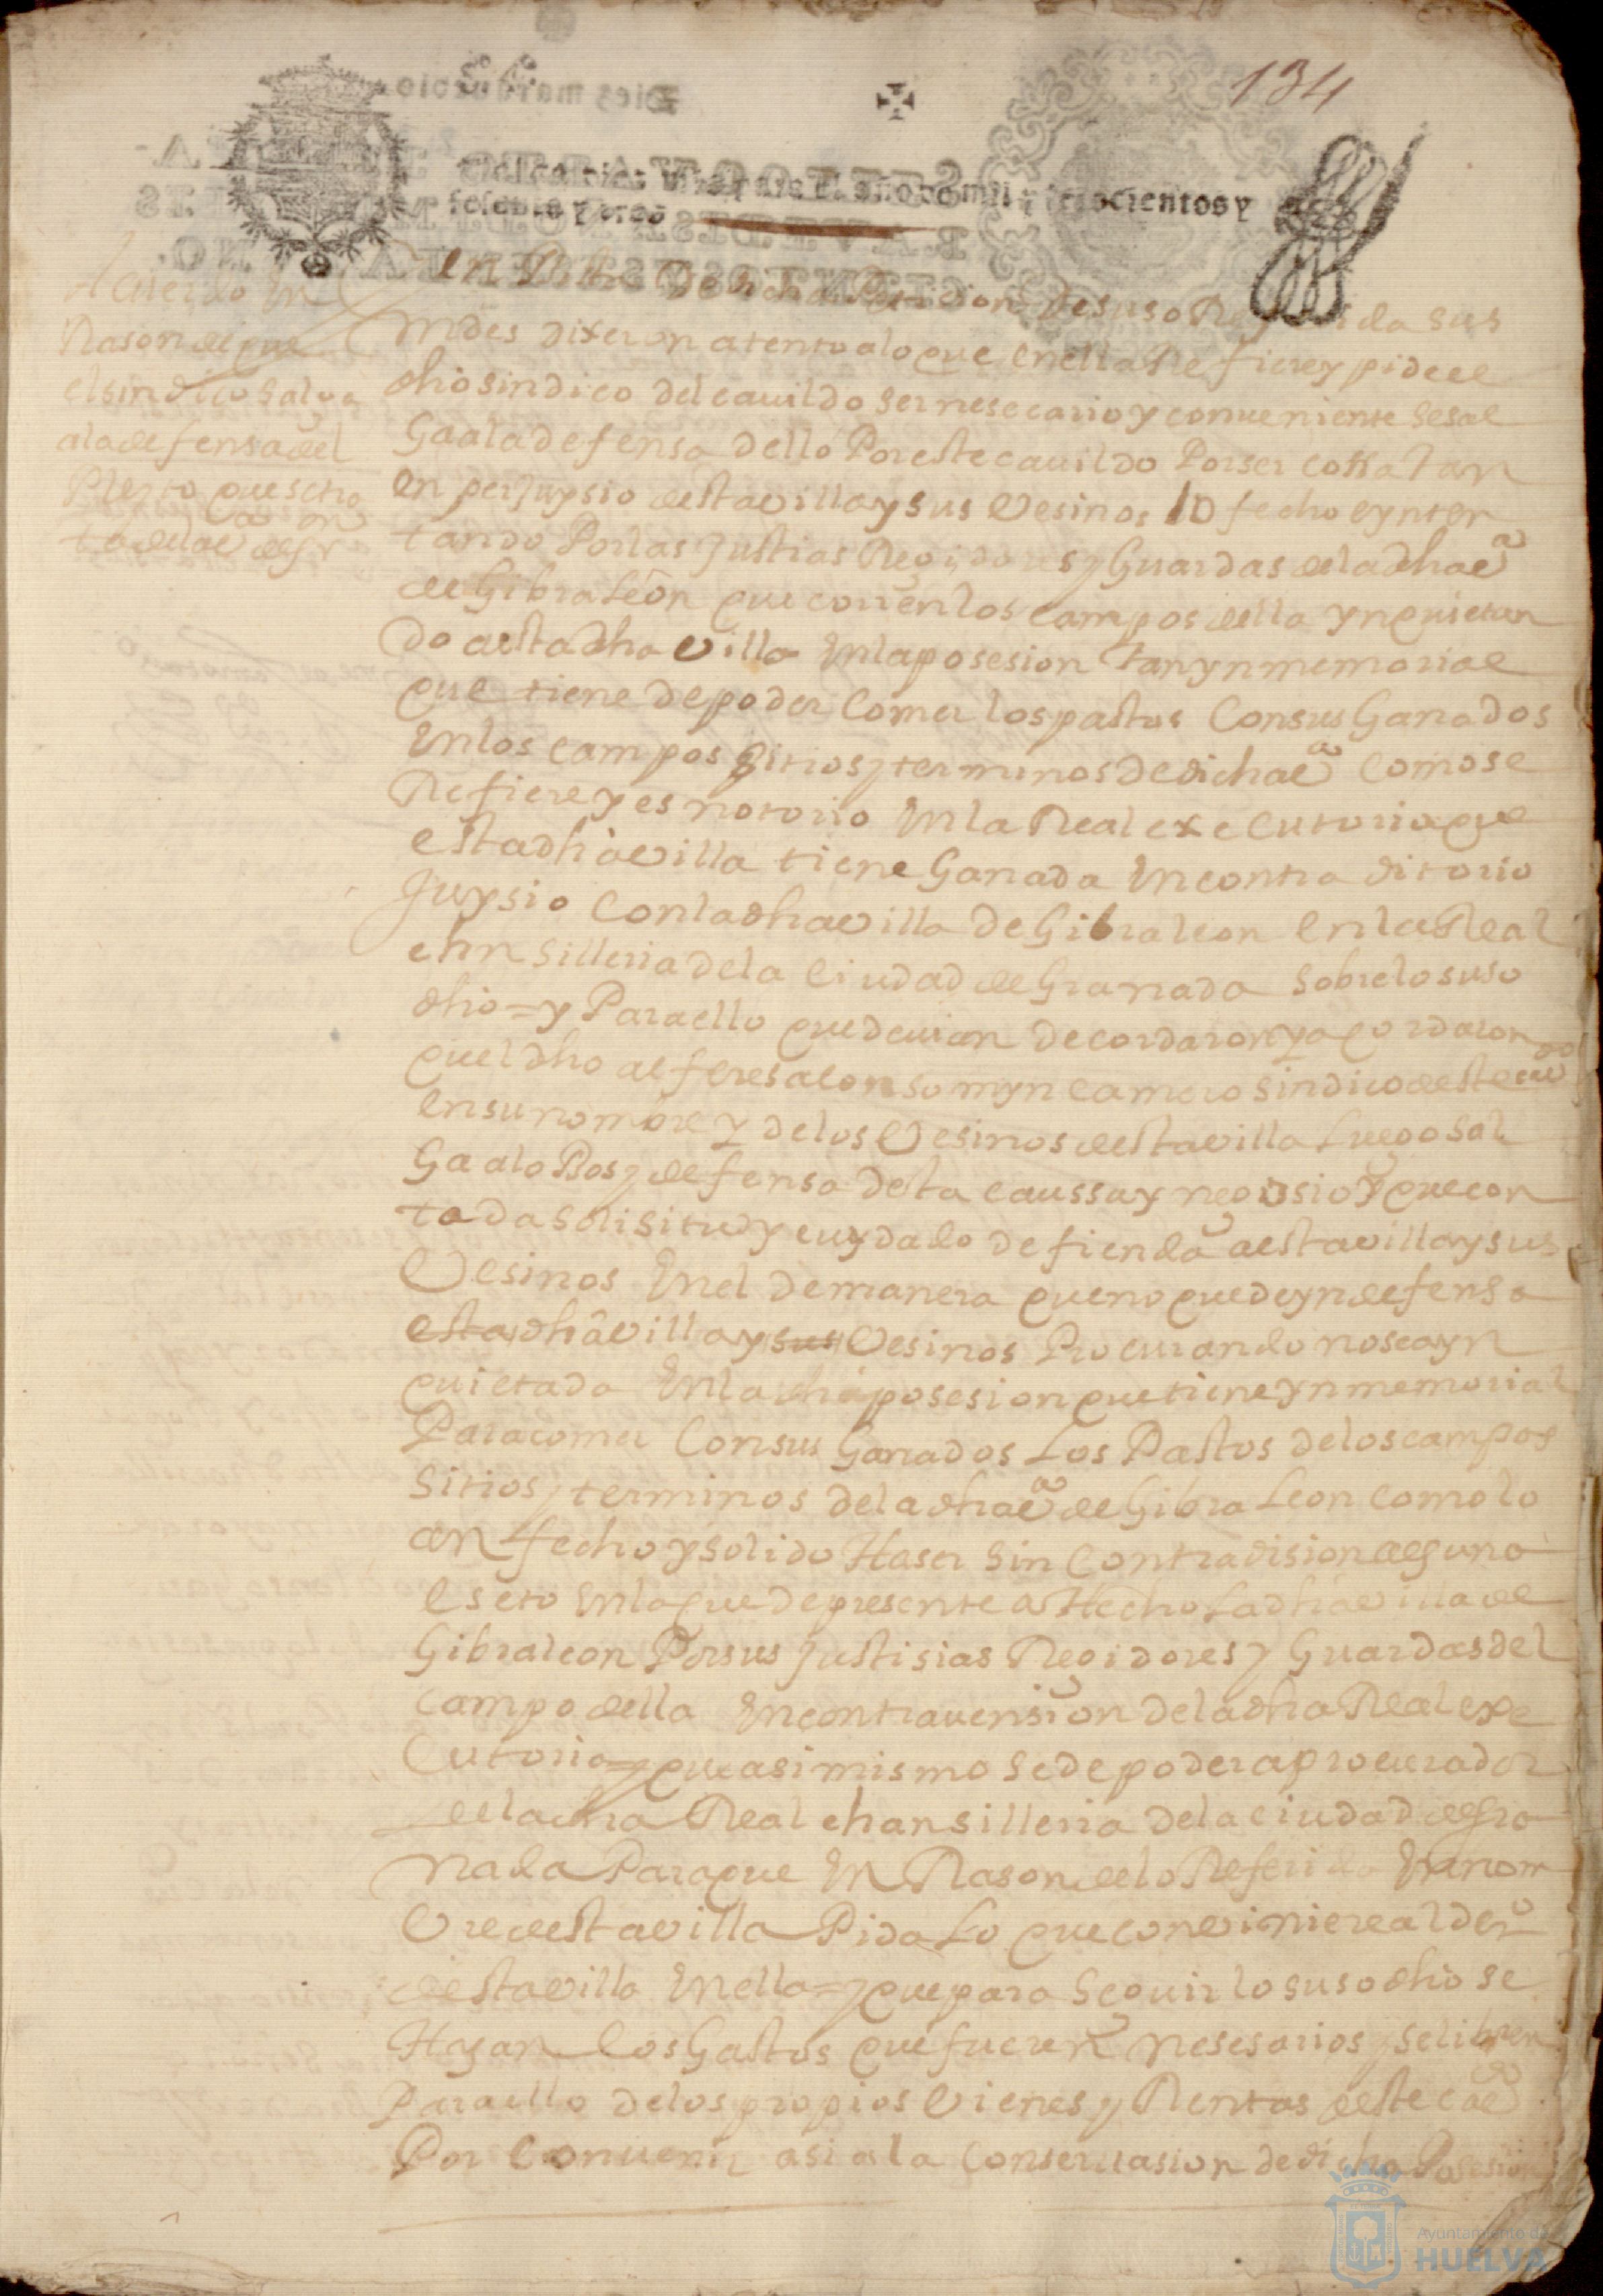 134
Dies marauedis
Acuerdo en
Rason de que
el sindico salga
a la defensa del
Pleyto que se tra
ta
En Vista De dha Petision De suso Referida sus
mdes dixeron atento a lo que en ella Refiere y pide el
dho sindico del cauildo ser nesecario y conueniente se sal
Ga a la defensa dello Por este cauildo Por ser cossa tan
en perJuysio desta villa y sus Vesinos lo fecho e ynten
tando Por las Justias Regidores y Guardas de la dha va
de Gibraleon que corren los campos della ynquietan
do a esta dha villa En la posesion tan ynmemorial
que tiene de poder Comer los pastos Con sus Ganados
En los campos sitios y terminos De dicha va Como se
Refiere y es notorio En la Real executoria que
esta dha villa tiene Ganada En contraditorio
Juysio Con la dha villa De Gibraleon En la Real
chansilleria de la Ciudad de Granada Sobre lo suso
dho = y Para ello que deuian De cordaron y acordaron
quel dho alferes alonso myn camero sindico deste cavdo
en su nombre y de los Vesinos desta villa Luego sal
Ga a la Bos y defensa desta caussa y negosio y que con
toda solisitud y cuydado defienda a esta villa y sus
Vesinos En el De manera que no quede yndefensa
esta dha villa y sus Vesinos Procurando no sea yn
quietada En la dha posesion que tiene ynmemorial
Para comer Con sus Ganados Los Pastos de los campos
Sitios y terminos de la dha va de Gibraleon como lo
an fecho y solido Haser sin Contradision alguna
eseto En la que De presente a Hecho La dha villa de
Gibraleon Por sus Justisias Regidores y Guardas del
campo della En contrauension de la dha Real exe
Cutoria = y que asimismo se de poder a procurador
de la dha Real chansilleria de la ciudad de Gra
nada Para que En Rason de lo Referido En nom
Vre desta villa Pida Lo que conviniere al dero
desta villa En ella = y que para seguir lo suso dho se
Hagan los Gastos que fueren nesesarios y se libren
Para ello de los propios Vienes y Rentas deste cavdo
Por Conuenir asi a la Conseruasion de dicha Posesion
Ayuntamiento de
HUELVA